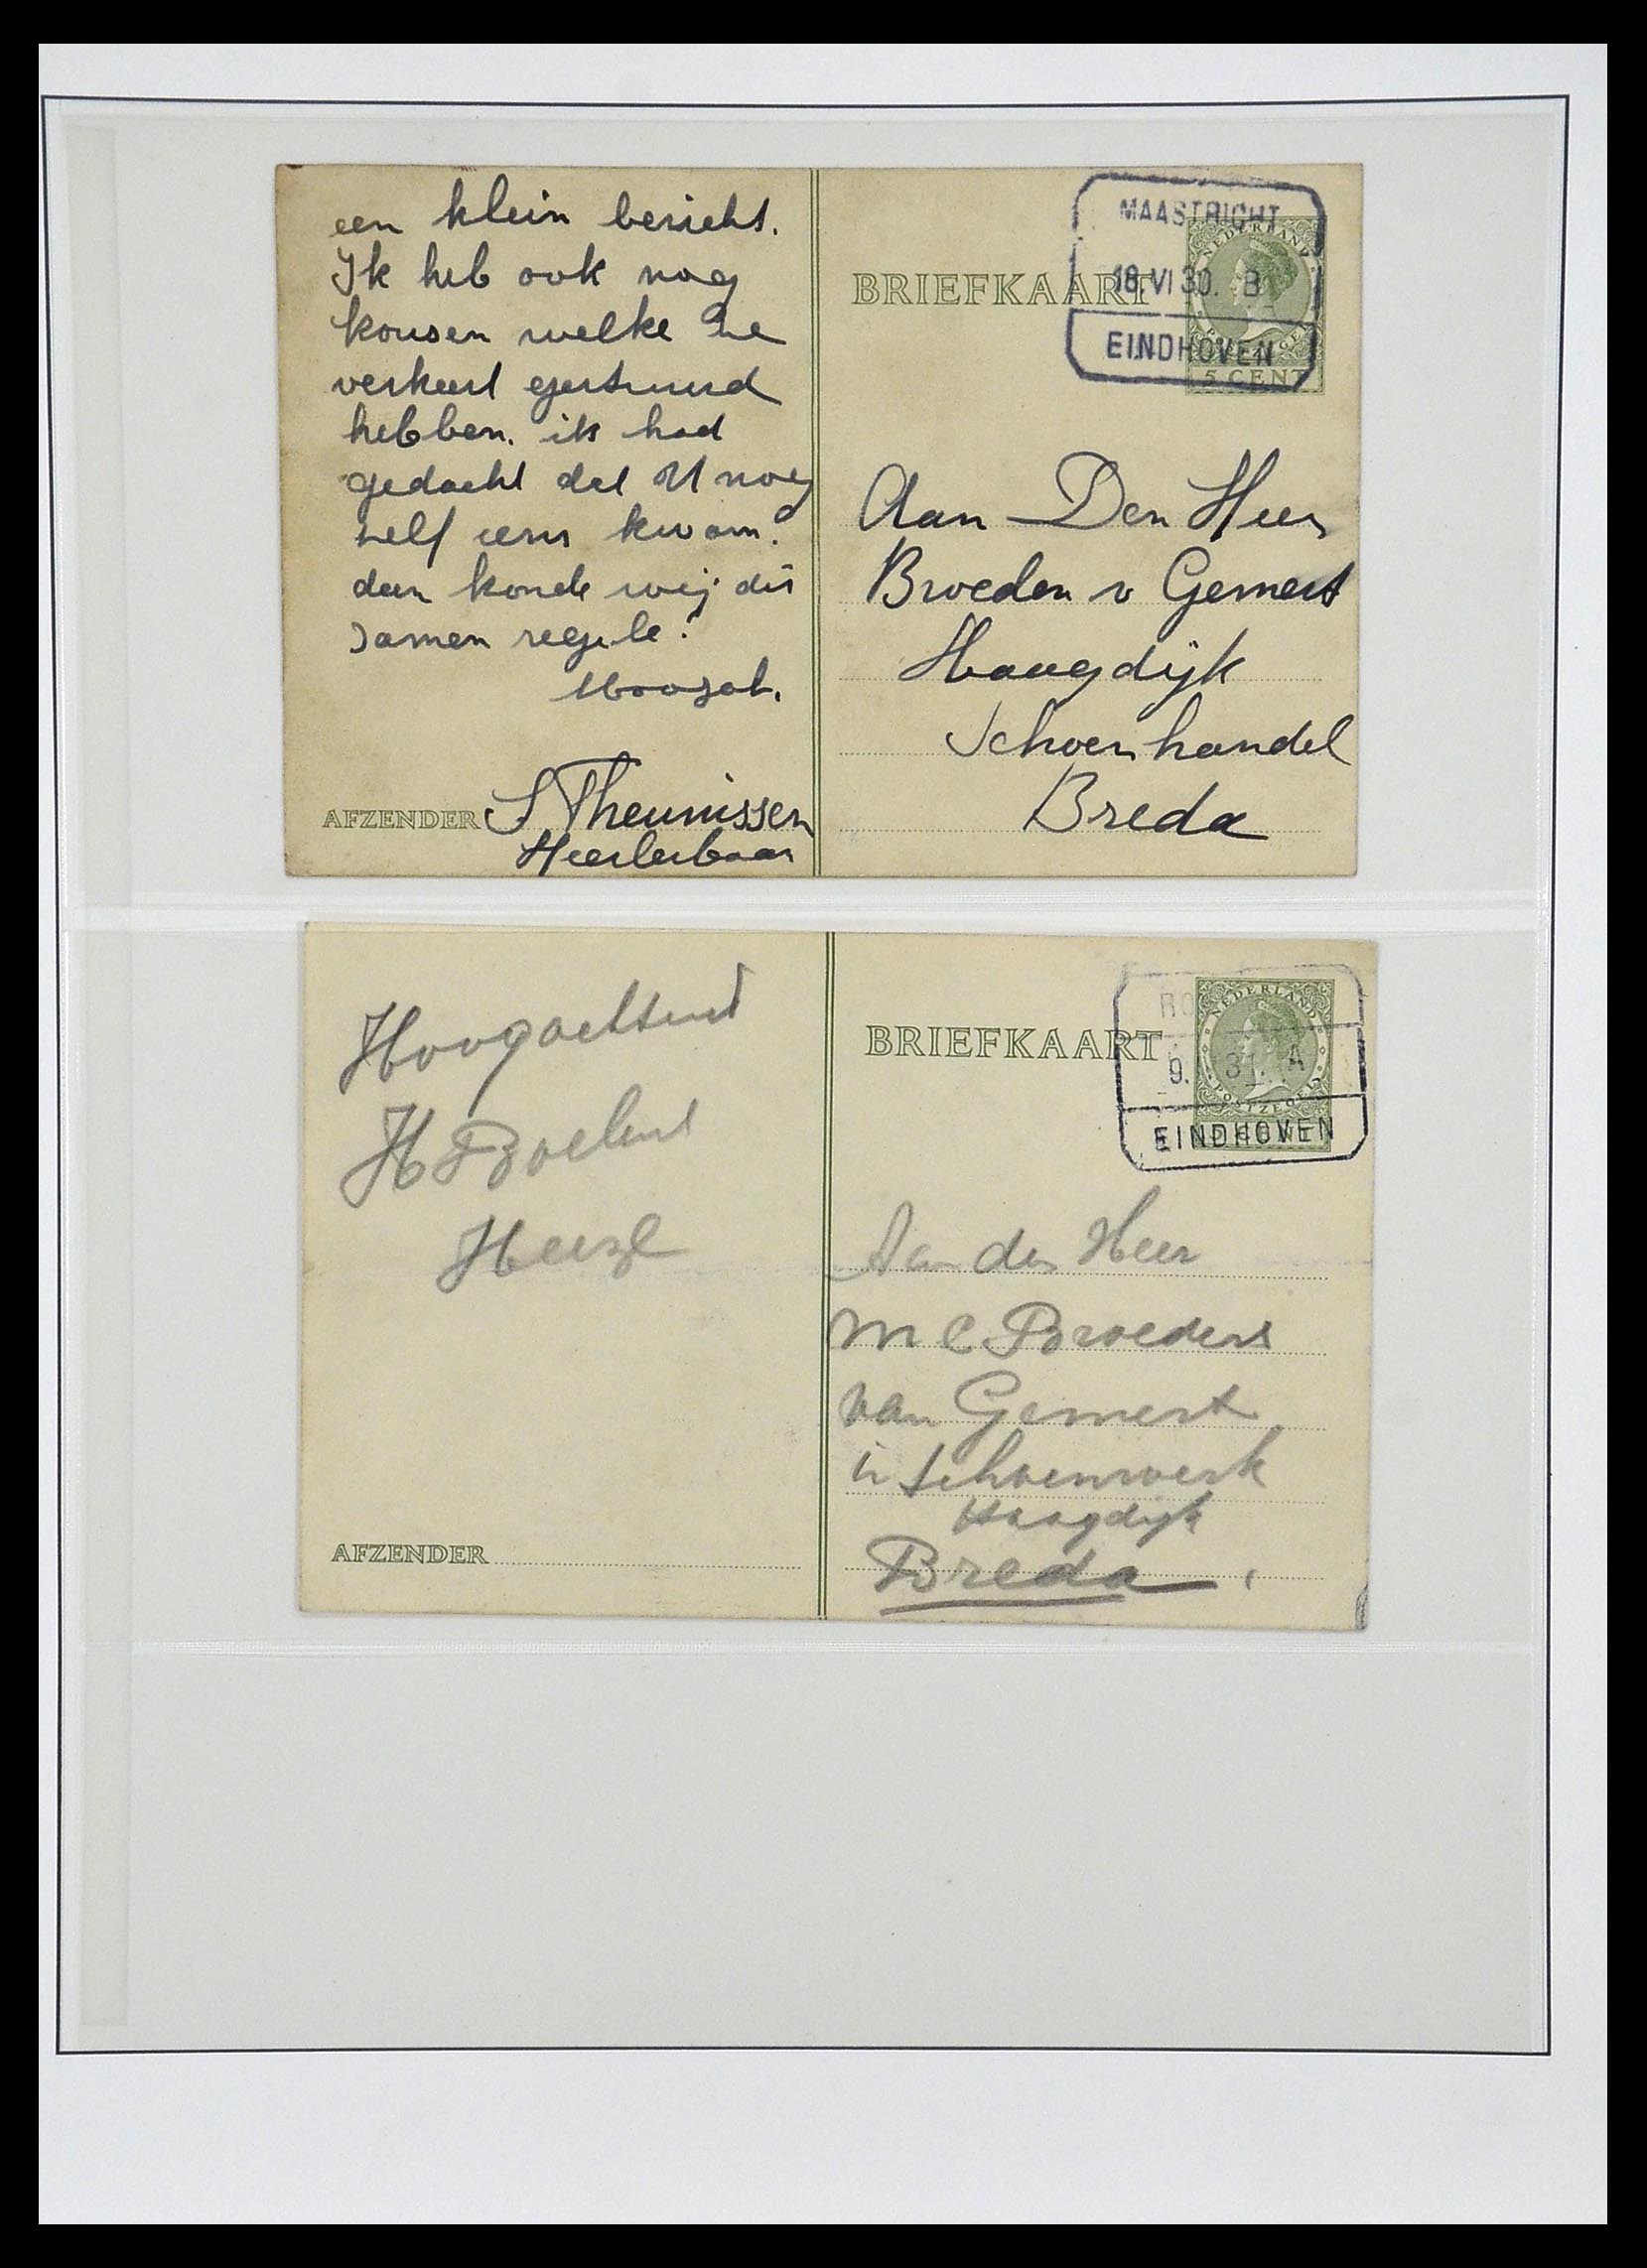 een klein bericht.
Ik heb ook nog
kousen welke ze
verkeerd gestuurd
hebben. ik had
gedacht dat U nog
zelf eens kwam.
dan konde wij dit
samen regele.
AFZENDER S Theunissen
Heerlerbaan
MAASTRICHT
18.VI 30. B
EINDHOVEN
NEDERLAND
5 CENT
BRIEFKAART
Aan Den Heer
Broeders v Gemert
Haagdijk
Schoenhandel
Breda
Hoogachtend
H Roelens
Heeze
AFZENDER
BRIEFKAART
RO
9. 31. A
EINDHOVEN
NEDERLAND
POSTZEGEL
Aan den Heer
M C Broeders
van Gemert
in Schoenwerk
Haagdijk
Breda.